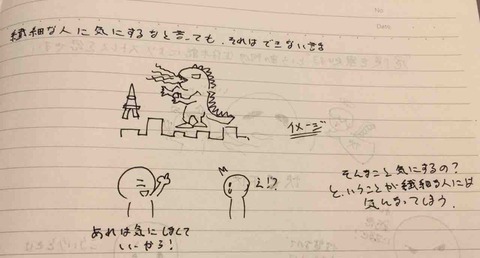 No.
Date
繊細な人に気にするなと言っても、それはできないまま
イメージ
えっ!?
そんなこと気にするの?
ということが繊細な人には
気になってしまう。
あれは気にしなくて
いいやろ!